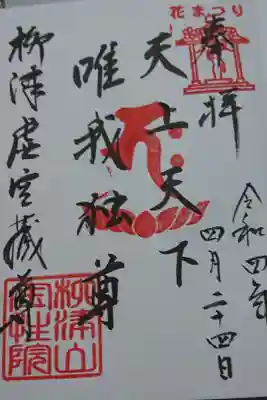 花まつり
奉拝
令和四年
四月二十四日
天上天下
唯我独尊
柳津虚空蔵尊
柳津山
宝性院